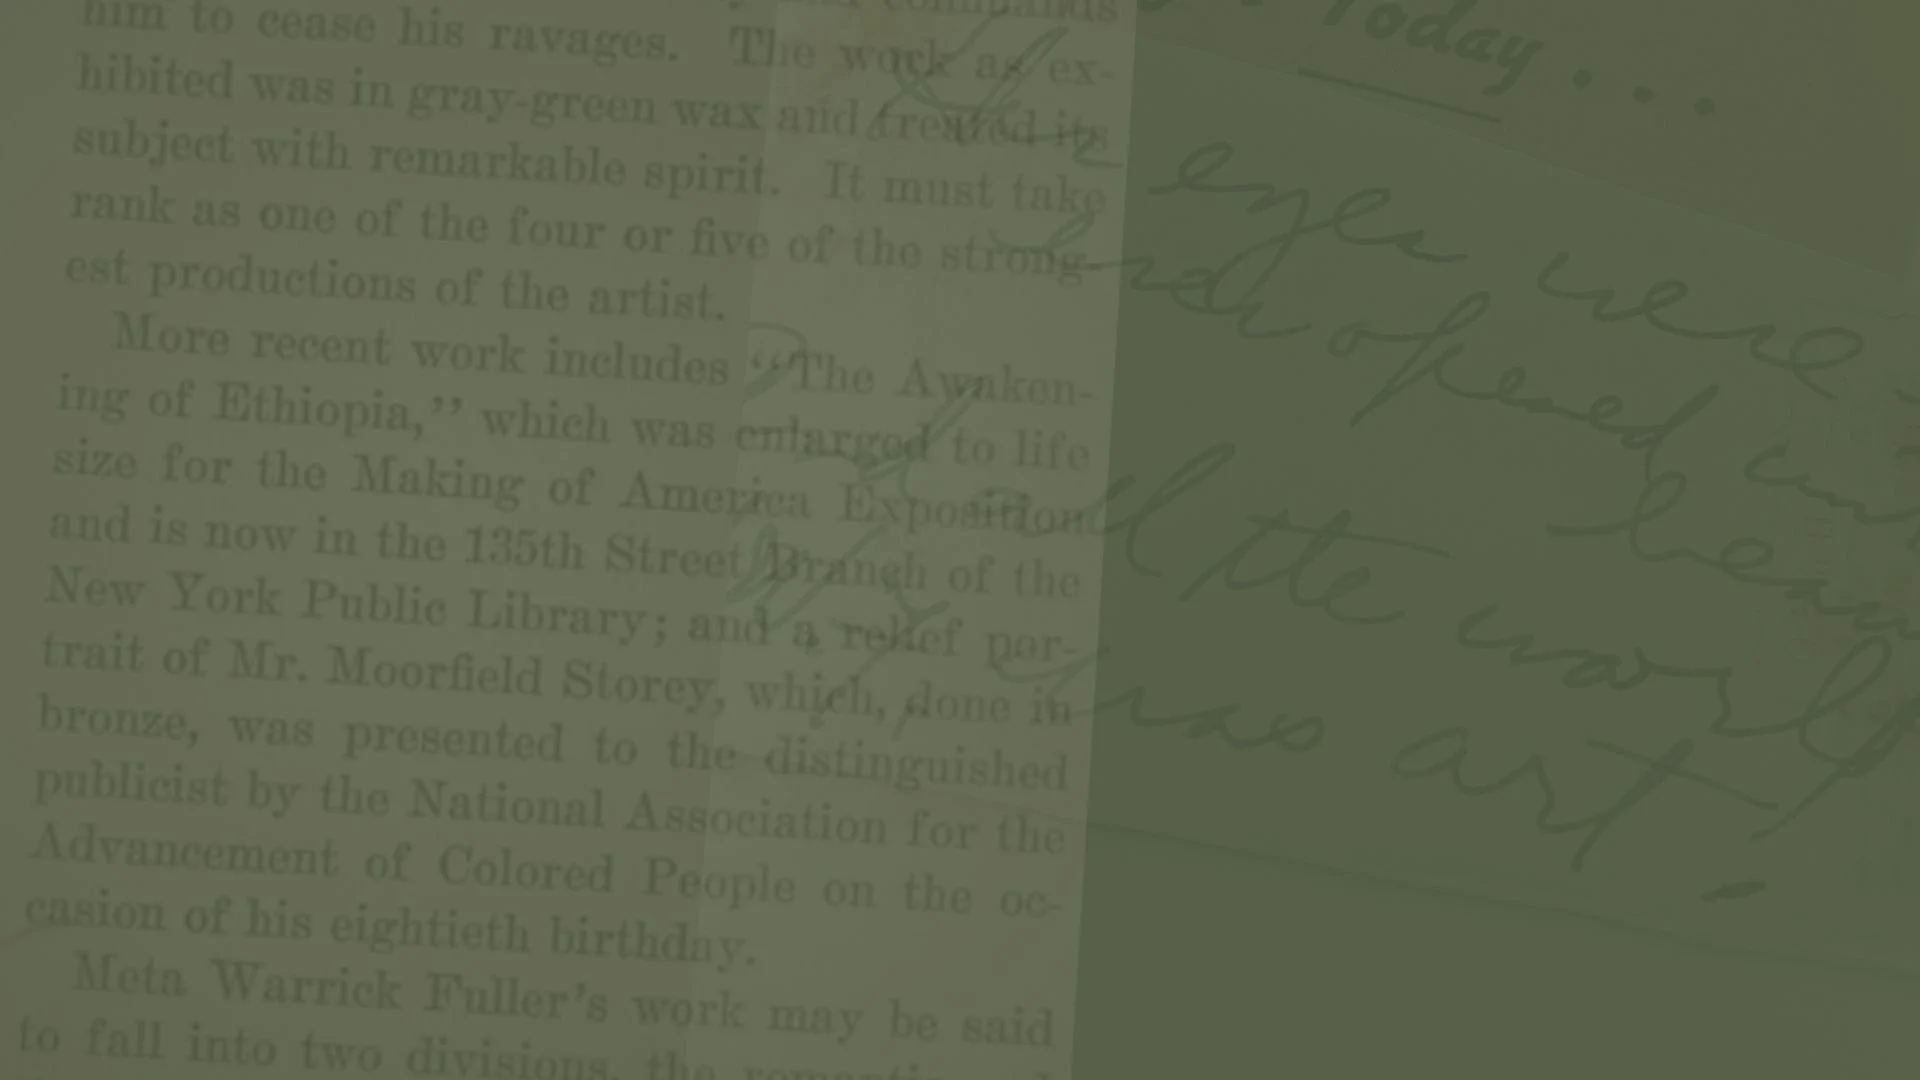 commands
him to cease his ravages. The work as ex-
hibited was in gray-green wax and treated its
subject with remarkable spirit. It must take
rank as one of the four or five of the strong-
est productions of the artist.
More recent work includes “The Awaken-
ing of Ethiopia,” which was enlarged to life
size for the Making of America Exposition
and is now in the 135th Street Branch of the
New York Public Library; and a relief por-
trait of Mr. Moorfield Storey, which, done in
bronze, was presented to the distinguished
publicist by the National Association for the
Advancement of Colored People on the oc-
casion of his eightieth birthday.
Meta Warrick Fuller’s work may be said
to fall into two divisions, the romantic
Today...
eyes were
opened
all the world
was art!